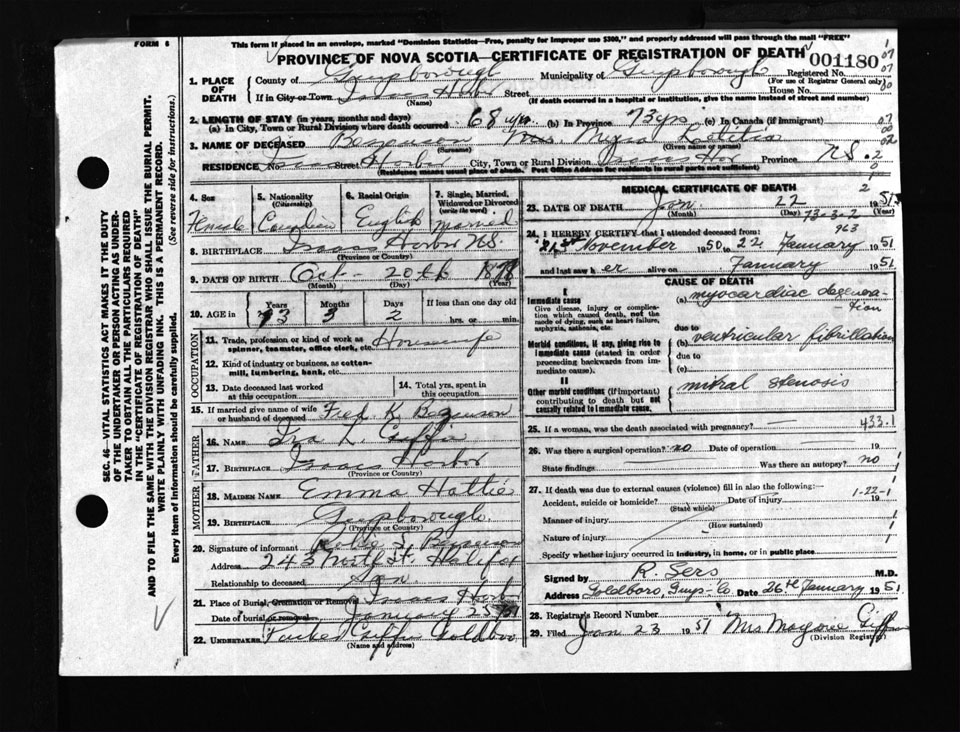 FORM 6
This form if placed in an envelope, marked "Dominion Statistics—Free, penalty for improper use $300," and properly addressed will pass through the mail "FREE"
PROVINCE OF NOVA SCOTIA—CERTIFICATE OF REGISTRATION OF DEATH
001180
Registered No.
(For use of Registrar General only)
1. PLACE OF DEATH
County of Guysborough Municipality of Guysborough
If in City or Town Isaacs Harbor Street House No.
(Name) (If death occurred in a hospital or institution, give the name instead of street and number)
2. LENGTH OF STAY (in years, months and days)
(a) In City, Town or Rural Division where death occurred 68 yrs. (b) In Province 73 yrs (c) In Canada (if immigrant)
3. NAME OF DECEASED Letitia
(Surname) (Given name or names)
RESIDENCE Isaacs Street Harbor City, Town or Rural Division Isaacs Hbr Province N.S.
(Residence means usual place of abode. Post Office Address for residents in rural parts not sufficient)
4. Sex Female
5. Nationality (Citizenship) Canadian
6. Racial Origin English
7. Single, Married, Widowed or Divorced (write the word) Married
8. BIRTHPLACE Isaacs Harbor N.S.
(Province or Country)
9. DATE OF BIRTH Oct- 20th
(Month) (Day) (Year)
10. AGE in Years Months Days If less than one day old
73 3 2 hrs. or min.
OCCUPATION
11. Trade, profession or kind of work as spinner, teamster, office clerk, etc. Housewife
12. Kind of industry or business, as cotton-mill, lumbering, bank, etc.
13. Date deceased last worked at this occupation
14. Total yrs. spent in this occupation
15. If married give name of wife or husband of deceased Fred K
FATHER
16. Name Giffin
17. Birthplace Isaacs Harbor
(Province or Country)
MOTHER
18. Maiden Name Emma Hattie
19. Birthplace Guysborough
(Province or Country)
20. Signature of informant
Address 243 St. Halifax
Relationship to deceased Son
21. Place of Burial, Cremation or Removal Isaacs Harbor
Date of burial or removal January 25
22. Undertaker Giffin Goldboro
(Name and address)
MEDICAL CERTIFICATE OF DEATH
23. DATE OF DEATH Jan 22 1951
(Month) (Day) (Year)
73-3-2
963
24. I HEREBY CERTIFY that I attended deceased from:
November 1950 to 22 January 1951
and last saw her alive on January 1951
CAUSE OF DEATH
I
Immediate cause
Give disease, injury or complication which caused death, not the mode of dying, such as heart failure, asphyxia, asthenia, etc.
(a) myocardiac degeneration
due to
Morbid conditions, if any, giving rise to immediate cause (stated in order proceeding backwards from immediate cause).
(b) ventricular fibrillation
due to
(c)
II
Other morbid conditions (if important) contributing to death but not causally related to immediate cause.
mitral stenosis
25. If a woman, was the death associated with pregnancy? — 433.1
26. Was there a surgical operation? no Date of operation 19
State findings Was there an autopsy? no
27. If death was due to external causes (violence) fill in also the following:—
Accident, suicide or homicide? Date of injury 19
(State which)
1-22-1
Manner of injury
(How sustained)
Nature of injury
Specify whether injury occurred in industry, in home, or in public place
Signed by R. Sers M.D.
Address Goldboro, Guys. Co Date 26th January 1951
28. Registrar's Record Number
29. Filed Jan 23 1951 Mrs
(Division Registrar)
SEC. 46—VITAL STATISTICS ACT MAKES IT THE DUTY
OF THE UNDERTAKER OR PERSON ACTING AS UNDER-
TAKER TO OBTAIN ALL THE PARTICULARS REQUIRED
IN THE "CERTIFICATE OF REGISTRATION OF DEATH"
AND TO FILE THE SAME WITH THE DIVISION REGISTRAR WHO SHALL ISSUE THE BURIAL PERMIT.
WRITE PLAINLY WITH UNFADING INK. THIS IS A PERMANENT RECORD.
Every item of information should be carefully supplied. (See reverse side for instructions.)